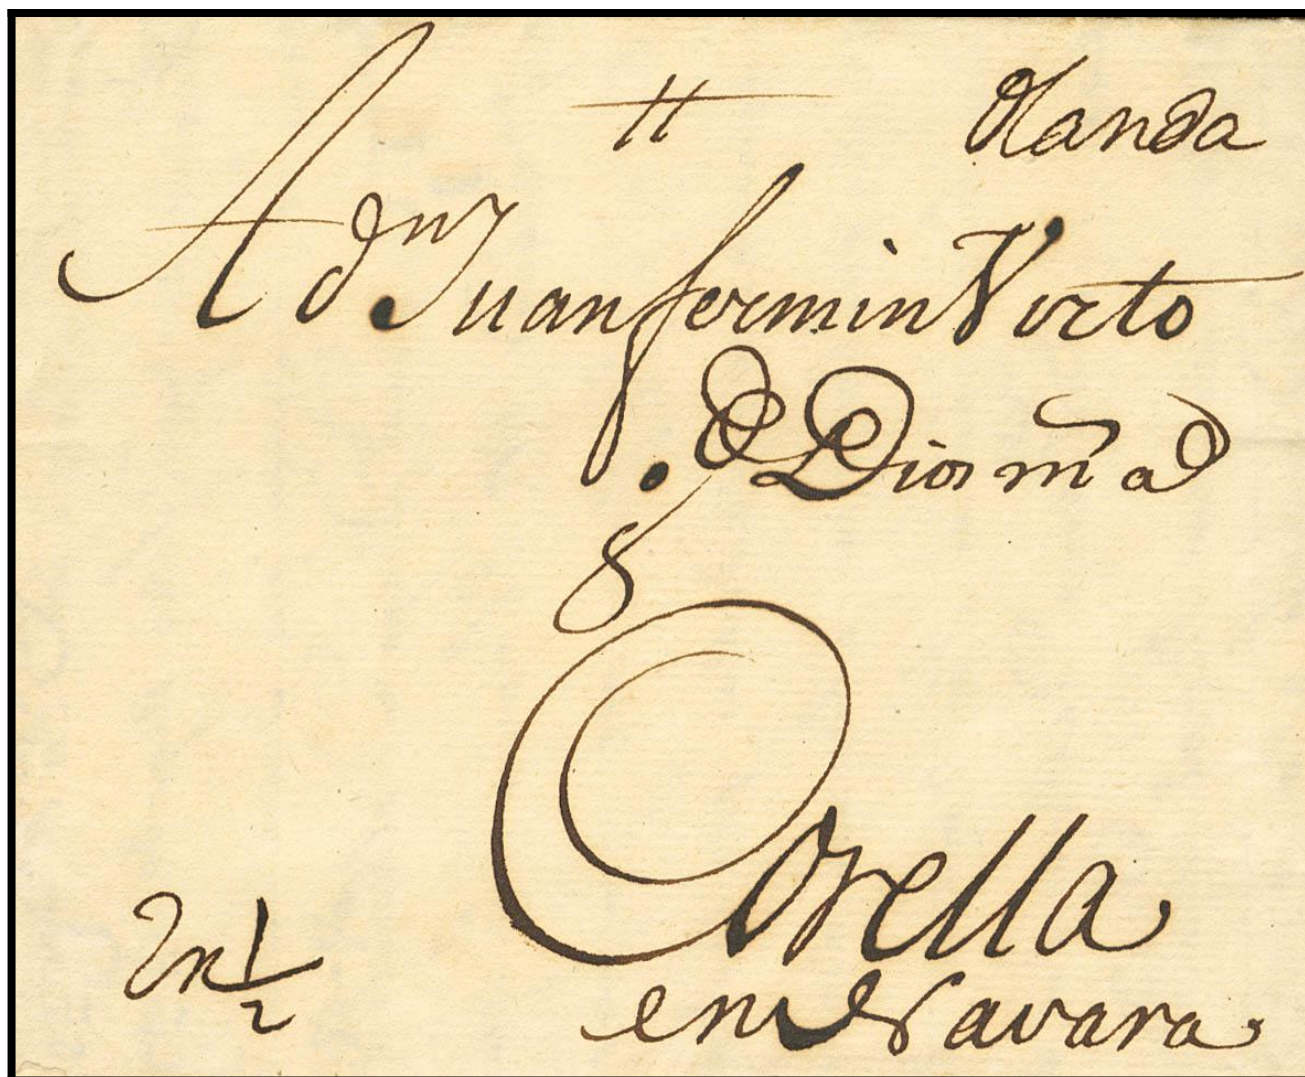 Olanda
A dn Juan fermin Virto
G Dios m a
Corella
en Navara
2 n 1/2